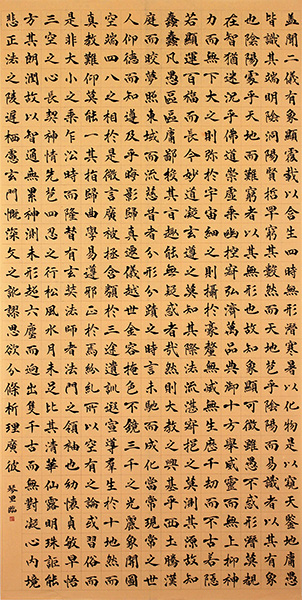 蓋聞二儀有像顯覆載以含生四時無形潛寒暑以化物是以窺天鑒地庸愚
皆識其端明陰洞陽賢哲罕窮其數然而天地苞乎陰陽而易識者以其有象
也陰陽處乎天地而難窮者以其無形也故知象顯可徵雖愚不惑形潛莫覩
在智猶迷況乎佛道崇虛乘幽控寂弘濟萬品典御十方舉威靈而無上抑神
力而無下大之則彌於宇宙細之則攝於豪釐無滅無生歷千劫而不古若隱
若顯運百福而長今妙道凝玄遵之莫知其際法流湛寂挹之莫測其源故知
蠢蠢凡愚區區庸鄙投其旨趣能無疑惑者哉然則大教之興基乎西土騰漢
庭而皎夢照東域而流慈昔者分形分跡之時言未馳而成化當常現常之世
人仰德而知遵及乎晦影歸真遷儀越世金容掩色不鏡三千之光麗象開圖
空端四八之相於是微言廣被拯含類於三途遺訓遐宣導羣生於十地然而
真教難仰莫能一其指歸曲學易遵邪正於焉紛糺所以空有之論或習俗而
是非大小之乘乍沿時而隆替有玄奘法師者法門之領袖也幼懷貞敏早悟
三空之心長契神情先苞四忍之行松風水月未足比其清華仙露明珠詎能
方其朗潤故以智通無累神測未形超六塵而迥出隻千古而無對凝心內境
悲正法之陵遲栖慮玄門慨深文之訛謬思欲分條析理廣彼
臨